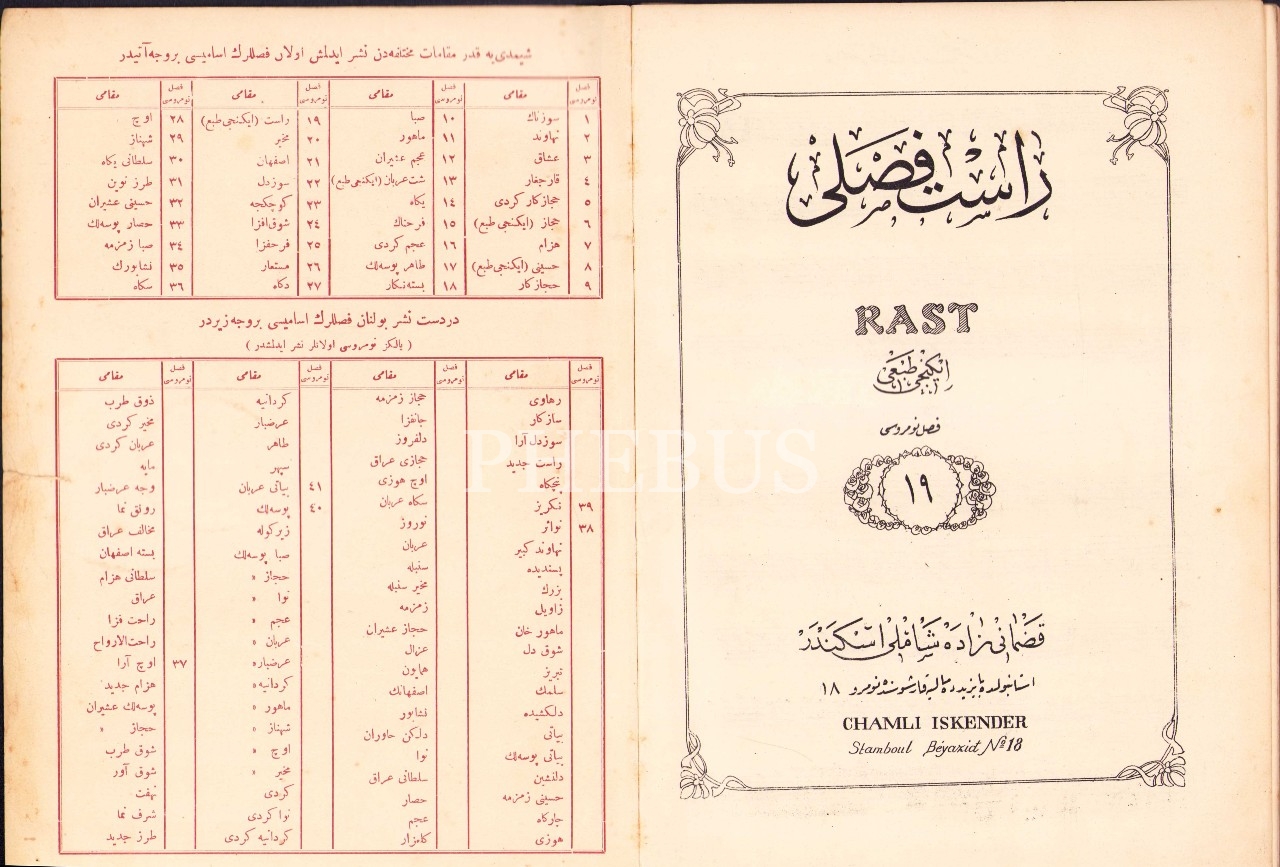 شیمدی‌یه قدر مقامات مختلفه‌دن نشر ایدلمش اولان فصللرك اسامیسی بروجه آتیدر
فصل نومروسی مقامی فصل نومروسی مقامی فصل نومروسی مقامی فصل نومروسی مقامی
١ سوزناك ١٠ صبا ١٩ راست (ایكنجی طبع) ٢٨ اوج
٢ نهاوند ١١ ماهور ٢٠ مخیر ٢٩ شهناز
٣ عشاق ١٢ عجم عشیران ٢١ اصفهان ٣٠ سلطانی یكاه
٤ قارجغار ١٣ شت عربان (ایكنجی طبع) ٢٢ سوزدل ٣١ طرز نوین
٥ حجازكار كردی ١٤ یكاه ٢٣ كوچكجه ٣٢ حسینی عشیران
٦ حجاز (ایكنجی طبع) ١٥ فرحناك ٢٤ شوق افزا ٣٣ حصار پوسه‌لك
٧ هزام ١٦ عجم كردی ٢٥ فرحفزا ٣٤ صبا زمزمه
٨ حسینی (ایكنجی طبع) ١٧ طاهر پوسه‌لك ٢٦ مستعار ٣٥ نشابورك
٩ حجازكار ١٨ بسته‌نكار ٢٧ دكاه ٣٦ سكاه
دردست نشر بولنان فصللرك اسامیسی بروجه زیردر
( یالكز نومروسی اولانلر نشر ایدلمشدر )
فصل نومروسی مقامی فصل نومروسی مقامی فصل نومروسی مقامی فصل نومروسی مقامی
رهاوی حجاز زمزمه كردانیه ذوق طرب
سازكار جانفزا عرضبار مخیر كردی
سوزدل آرا دلفروز طاهر عربان كردی
راست جدید حجازی عراق سپهر مایه
پنجكاه اوج هوزی ٤١ بیاتی عربان وجه عرضبار
٣٩ نكریز سكاه عربان ٤٠ پوسه‌لك رونق نما
٣٨ نواثر نوروز زیركوله مخالف عراق
نهاوند كبیر عربان صبا پوسه‌لك بسته اصفهان
پسندیده سنبله حجاز » سلطانی هزام
بزرك مخیر سنبله نوا » عراق
زاویل زمزمه عجم » راحت فزا
ماهور خان حجاز عشیران عربان » راحت‌الارواح
شوق دل عزال عرضبار » ٣٧ اوج آرا
تبریز همایون كردانیه » هزام جدید
سلمك اصفهانك ماهور » پوسه‌لك عشیران
دلكشیده نشابور شهناز » حجاز »
بیاتی دلكن حاوران اوج » شوق طرب
بیاتی پوسه‌لك نوا مخیر » شوق آور
دلنشین سلطانی عراق كردی نهفت
حسینی زمزمه حصار نوا كردی شرف نما
چاركاه عجم كردانیه كردی طرز جدید
هوزی كامزار
راست فصلی
RAST
ایكنجی طبعی
فصل نومروسی
١٩
قضمانی زاده شاملی اسكندر
استانبولده بایزیدده مالیه قارشوسنده نومرو ١٨
CHAMLI ISKENDER
Stamboul Béyazid Nº 18
PHEBUS